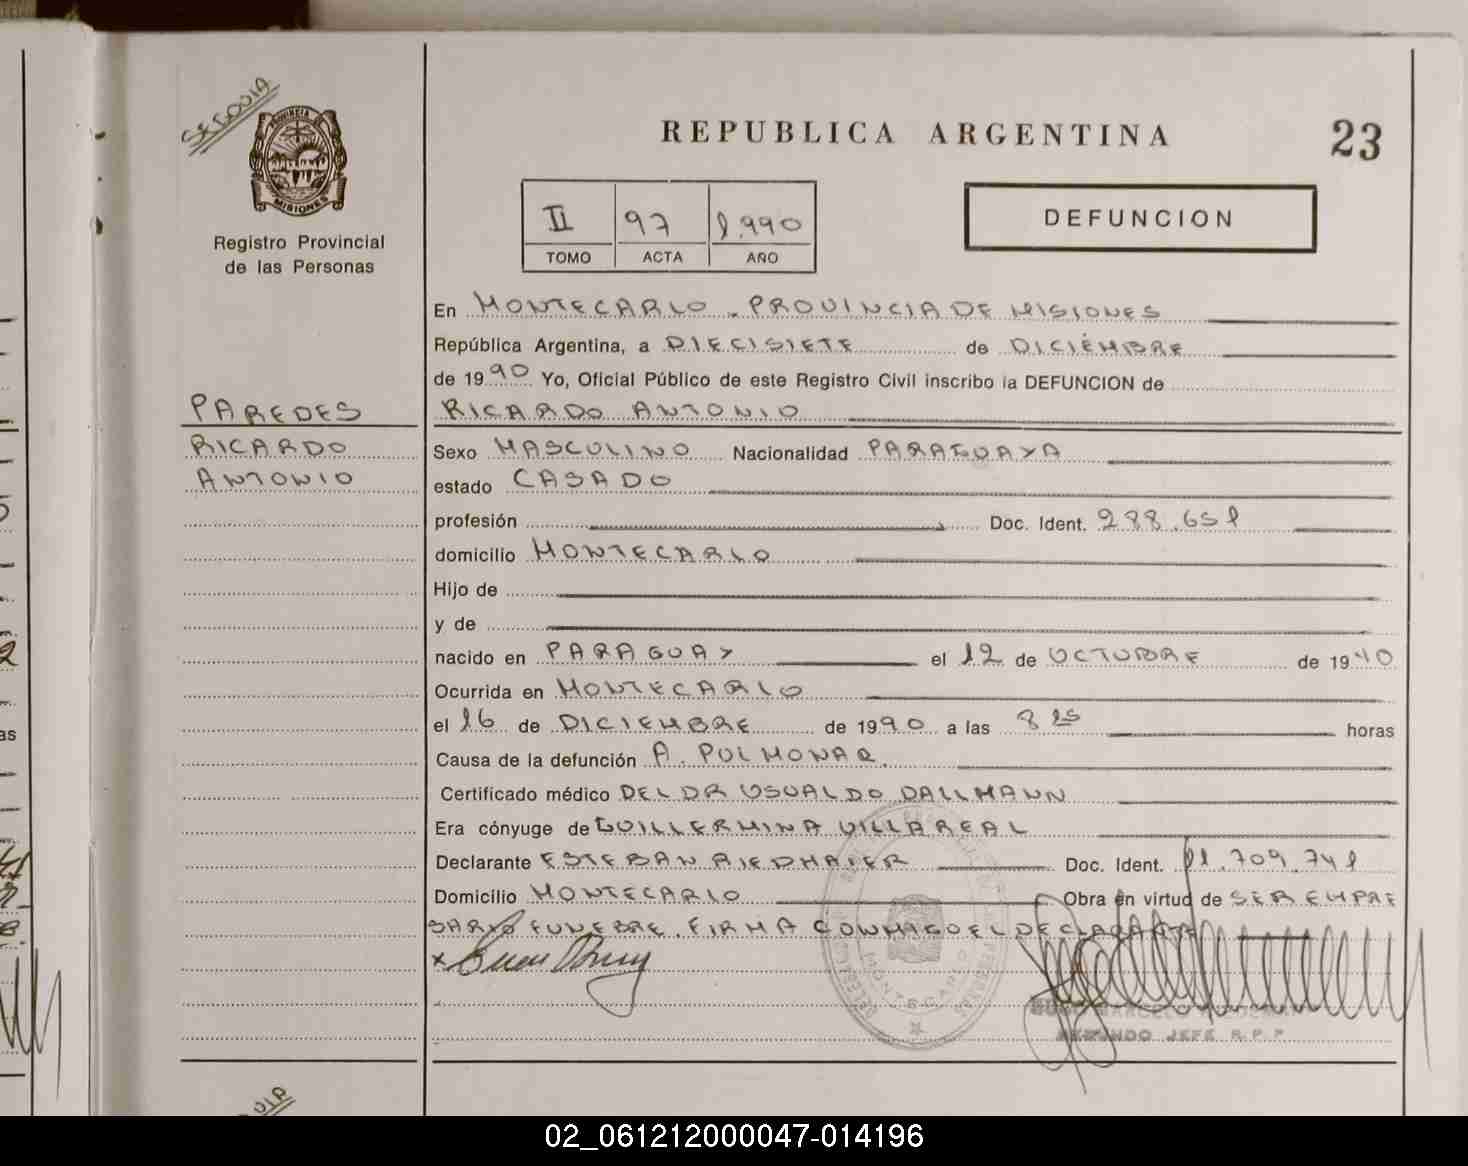 SEGOVIA
PROVINCIA DE
MISIONES
Registro Provincial
de las Personas
REPUBLICA ARGENTINA
23
II 97 1.990
TOMO ACTA AÑO
DEFUNCION
PAREDES
RICARDO
ANTONIO
En MONTECARLO - PROVINCIA DE MISIONES
República Argentina, a DIECISIETE de DICIEMBRE
de 1990 Yo, Oficial Público de este Registro Civil inscribo la DEFUNCION de
RICARDO ANTONIO
Sexo MASCULINO Nacionalidad PARAGUAYA
estado CASADO
profesión Doc. Ident. 288.651
domicilio MONTECARLO
Hijo de
y de
nacido en PARAGUAY el 12 de OCTUBRE de 1940
Ocurrida en MONTECARLO
el 16 de DICIEMBRE de 1990 a las 8 25 horas
Causa de la defunción A. PULMONAR.
Certificado médico DEL DR OSVALDO DALLMANN
Era cónyuge de GUILLERMINA VILLAREAL
Declarante ESTEBAN RIEDMAIER Doc. Ident. 11.709.741
Domicilio MONTECARLO Obra en virtud de SER EMPRE
SARIO FUNEBRE. FIRMA CONMIGO EL DECLARANTE
x
MONTECARLO
MARCELO
SEGUNDO JEFE R.P.P
02_061212000047-014196